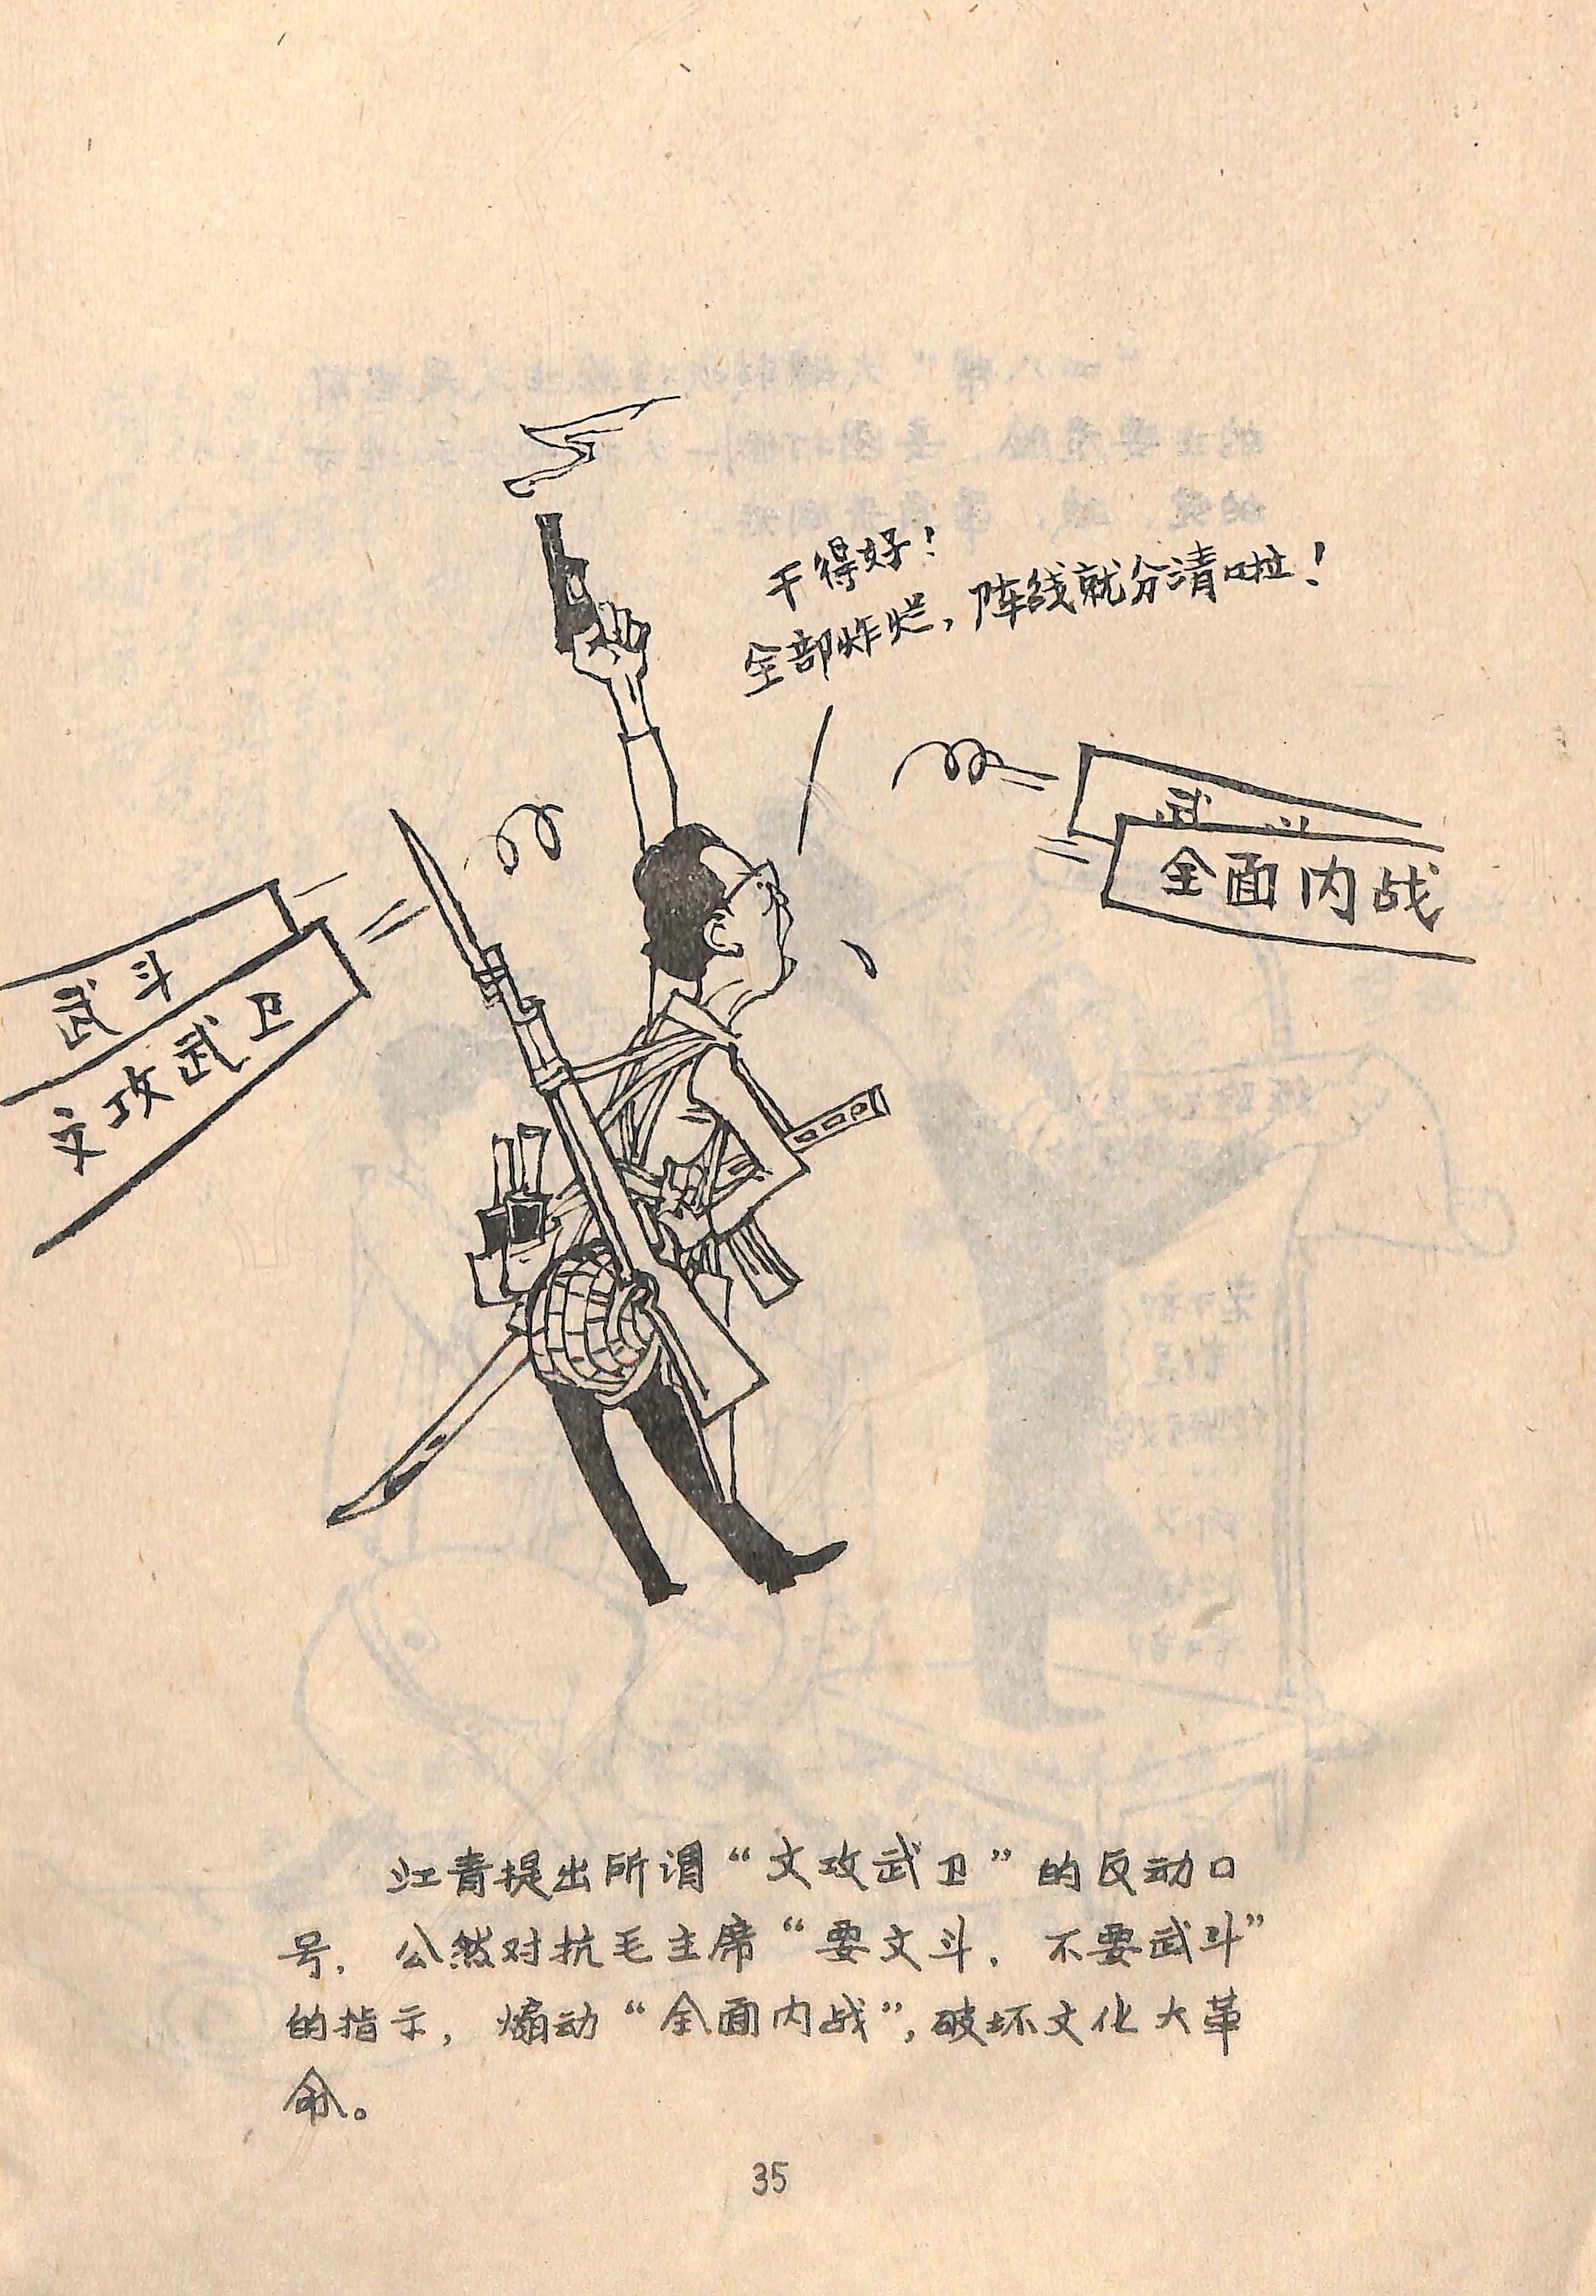 干得好！
全部炸烂，阵线就分清啦！
武
全面内战
武斗
文攻武卫
江青提出所谓“文攻武卫”的反动口
号，公然对抗毛主席“要文斗，不要武斗”
的指示，煽动“全面内战”，破坏文化大革
命。
35